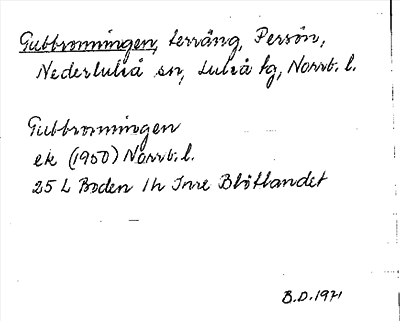 Gubbronningen, terräng, Persön,
Nederluleå sn, Luleå kg, Norrb. l.
Gubbronningen
ek (1950) Norrb. l.
25 L Boden 1h Inre Blötlandet
B.D. 1971